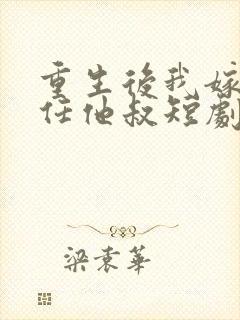 重生後我嫁
任他叔短劇
梁袁華